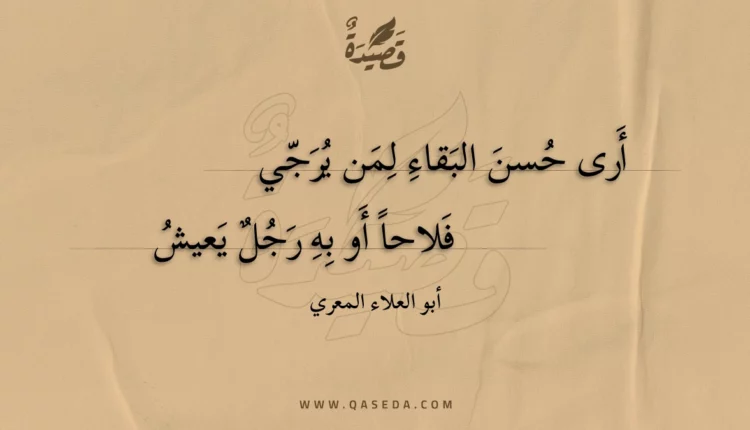 قَصِيدَةٌ
أَرى حُسنَ البَقاءِ لِمَن يُرَجّي
فَلاحاً أَو بِهِ رَجُلٌ يَعيشُ
أبو العلاء المعري
WWW.QASEDA.COM